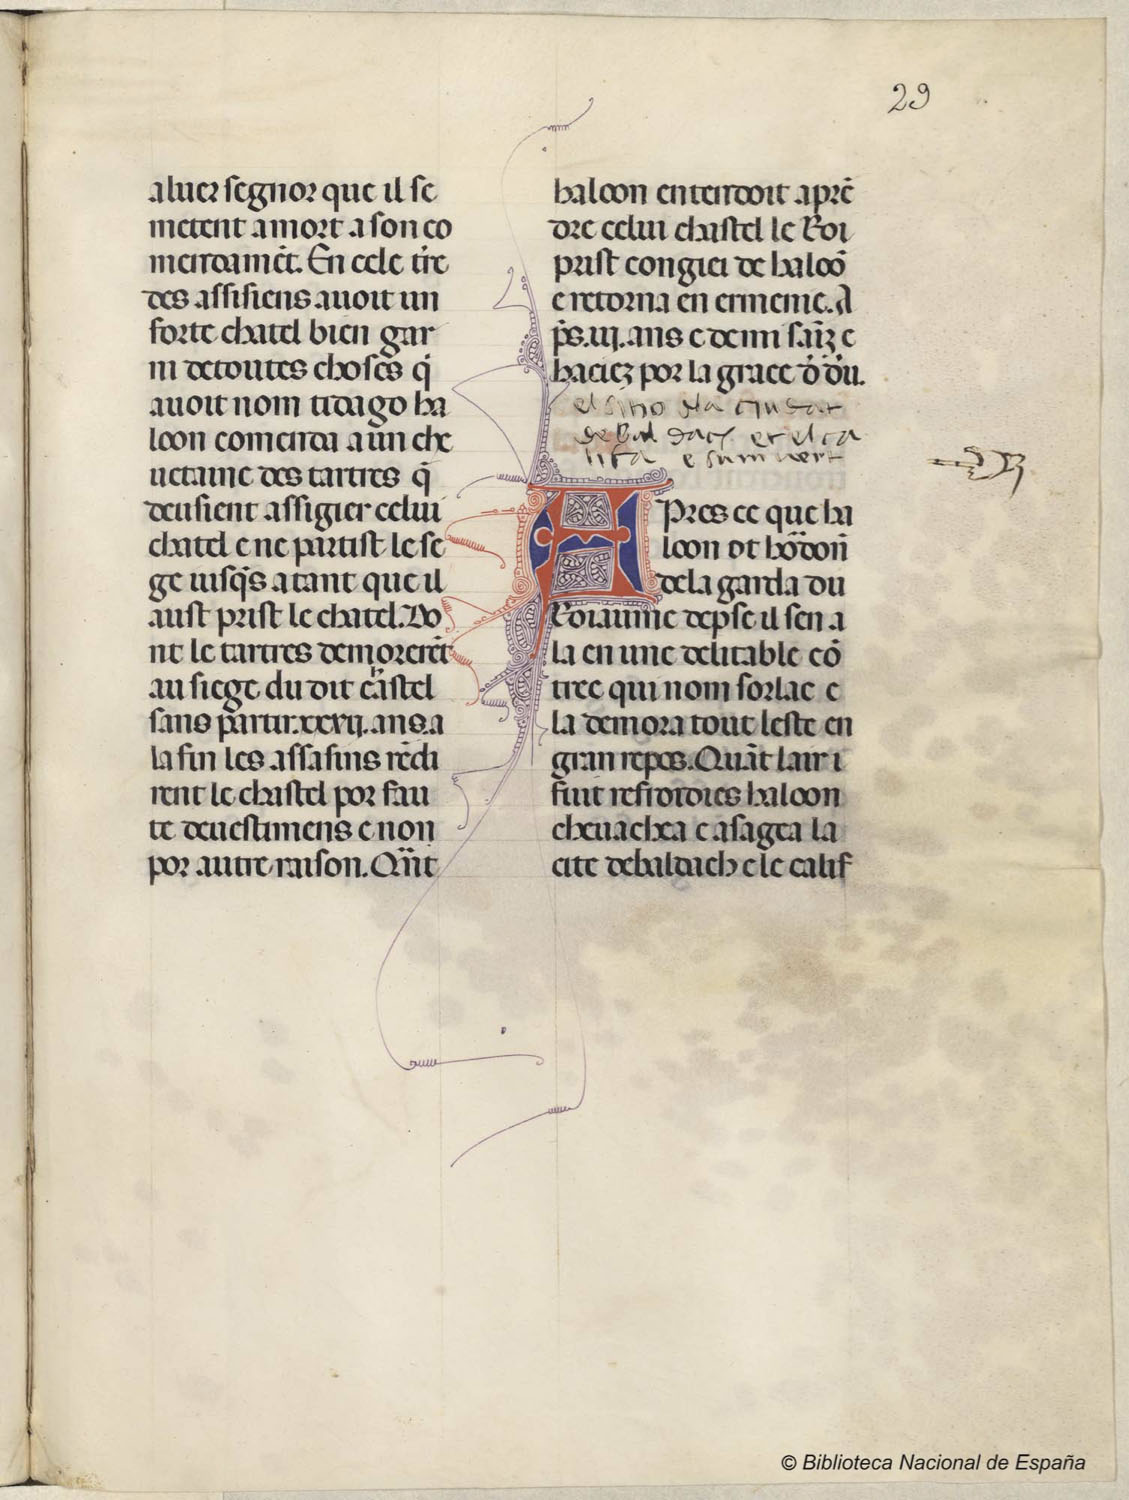 29
a luer segnor que il se
metent a mort a son co
mendamẽt. En cele tr̃e
des assisiens auoit un
forte chatel bien gar
ni de toutes choses q̃
auoit nom tidago ha
loon comenda a un che
uetaine des tartres q̃
deusient assigier celui
chatel e ne partist le se
ge iusq̃s a tant que il
aust prist le chatel. Do
nt le tartres demorerẽt
au siege du dit castel
sans partir. xxvij. ans. a
la fin les assasins rẽdi
rent le chastel por fau
te deuestimens e non
por autre raison. Qũt
haloon entendoit aprẽ
dre celui chastel le Roi
prist congiei de haloõ
e retorna en ermenie. A
p̃s. iij. ans e demi sainz e
haciez por la grace d̃ d̃u.
el sitio dla ciudat
de Baldach et el ca
lifa
Pres ce que ha
loon ot hõdoñ
de la garda du
Roiaume de pse il sen a
la en une delitable cõ
tree qui nom sorlac e
la demora tout leste en
gran repos. Quãt lair i
fuit refroidies haloon
cheuachea e asagea la
cite de baldach e le calif
© Biblioteca Nacional de España